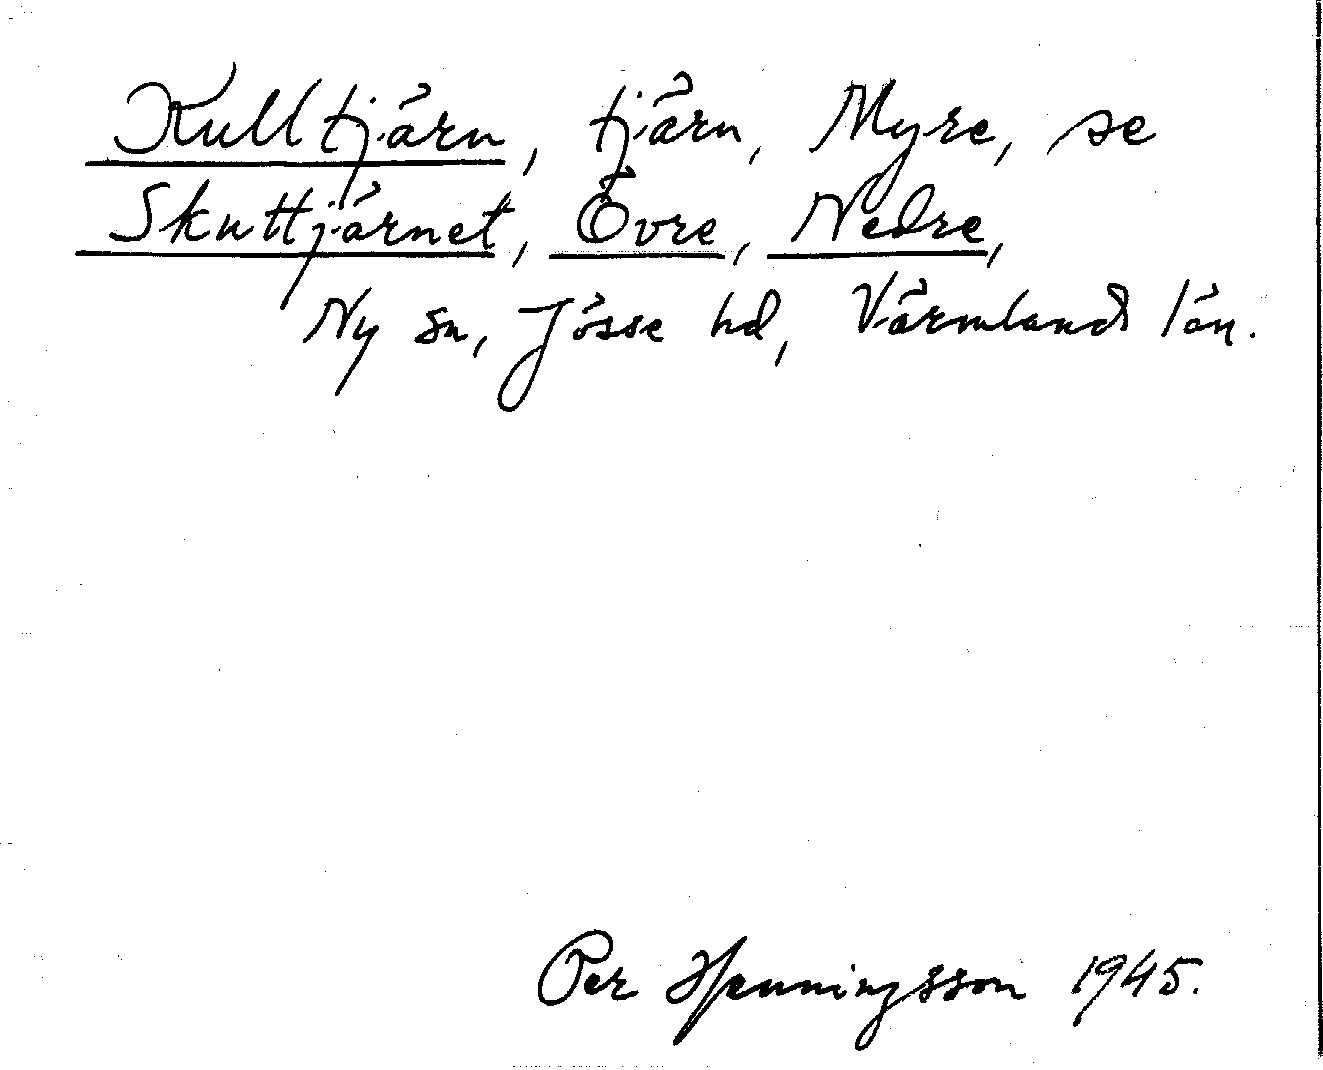 Kulltjärn, tjärn, Myre, se
Skuttjärnet, Övre, Nedre,
Ny sn, Jösse hd, Värmland län.
Per Henningsson 1945.